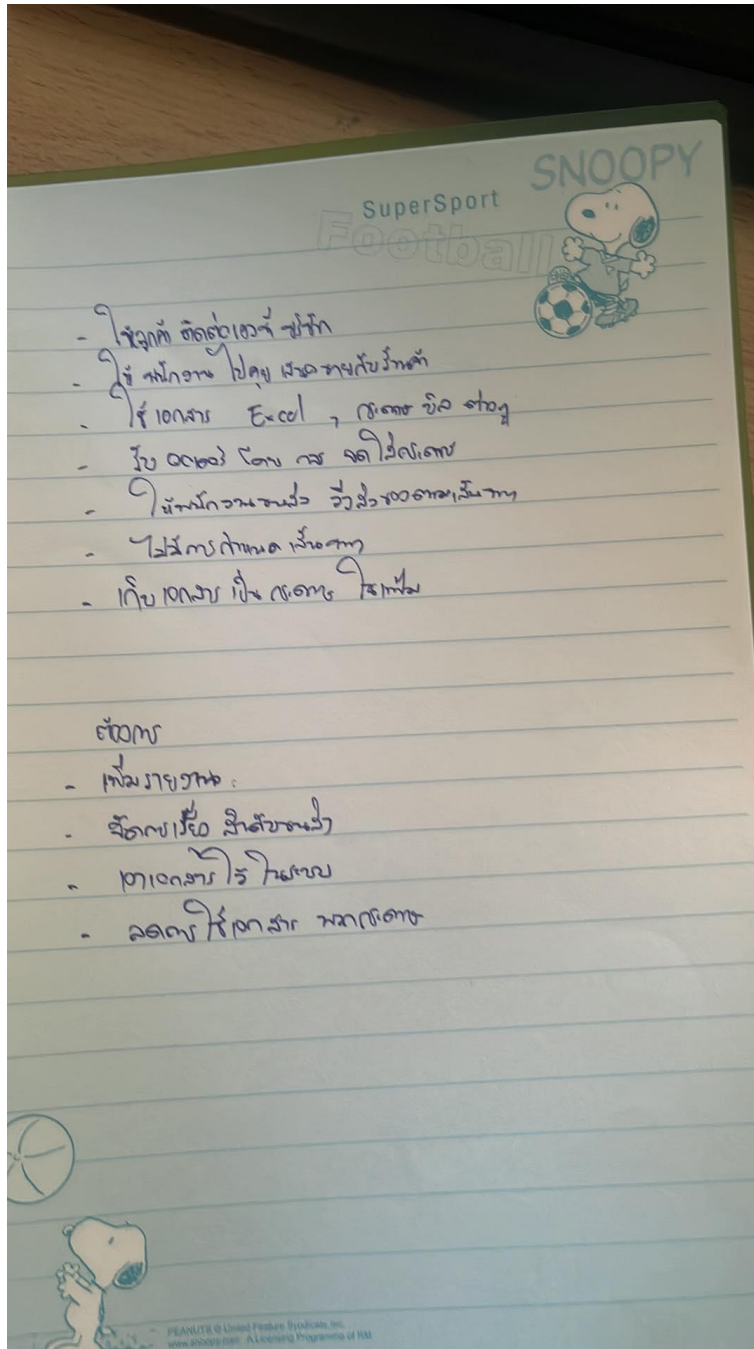 SNOOPY
SuperSport
Football
- ให้ลูกค้า ติดต่อเองที่ บริษัท
- ใช้ พนักงาน ไปคุย เสนอขายกับร้านค้า
- ใช้ เอกสาร Excel , กระดาษ บิล ต่างๆ
- รับ ออเดอร์ โดย การ จดใส่กระดาษ
- ให้พนักงานขนส่ง วิ่งส่งของตามเส้นทาง
- ไม่มีการกำหนด เส้นทาง
- เก็บ เอกสาร เป็น กระดาษ ในแฟ้ม
ต้องการ
- เพิ่มรายงาน
- จัดการเรื่อง ลำดับขนส่ง
- เอาเอกสาร ไว้ ในระบบ
- ลดการใช้เอกสาร พวกกระดาษ
PEANUTS © United Feature Syndicate, Inc.
www.snoopy.com A Licensing Programme of RM